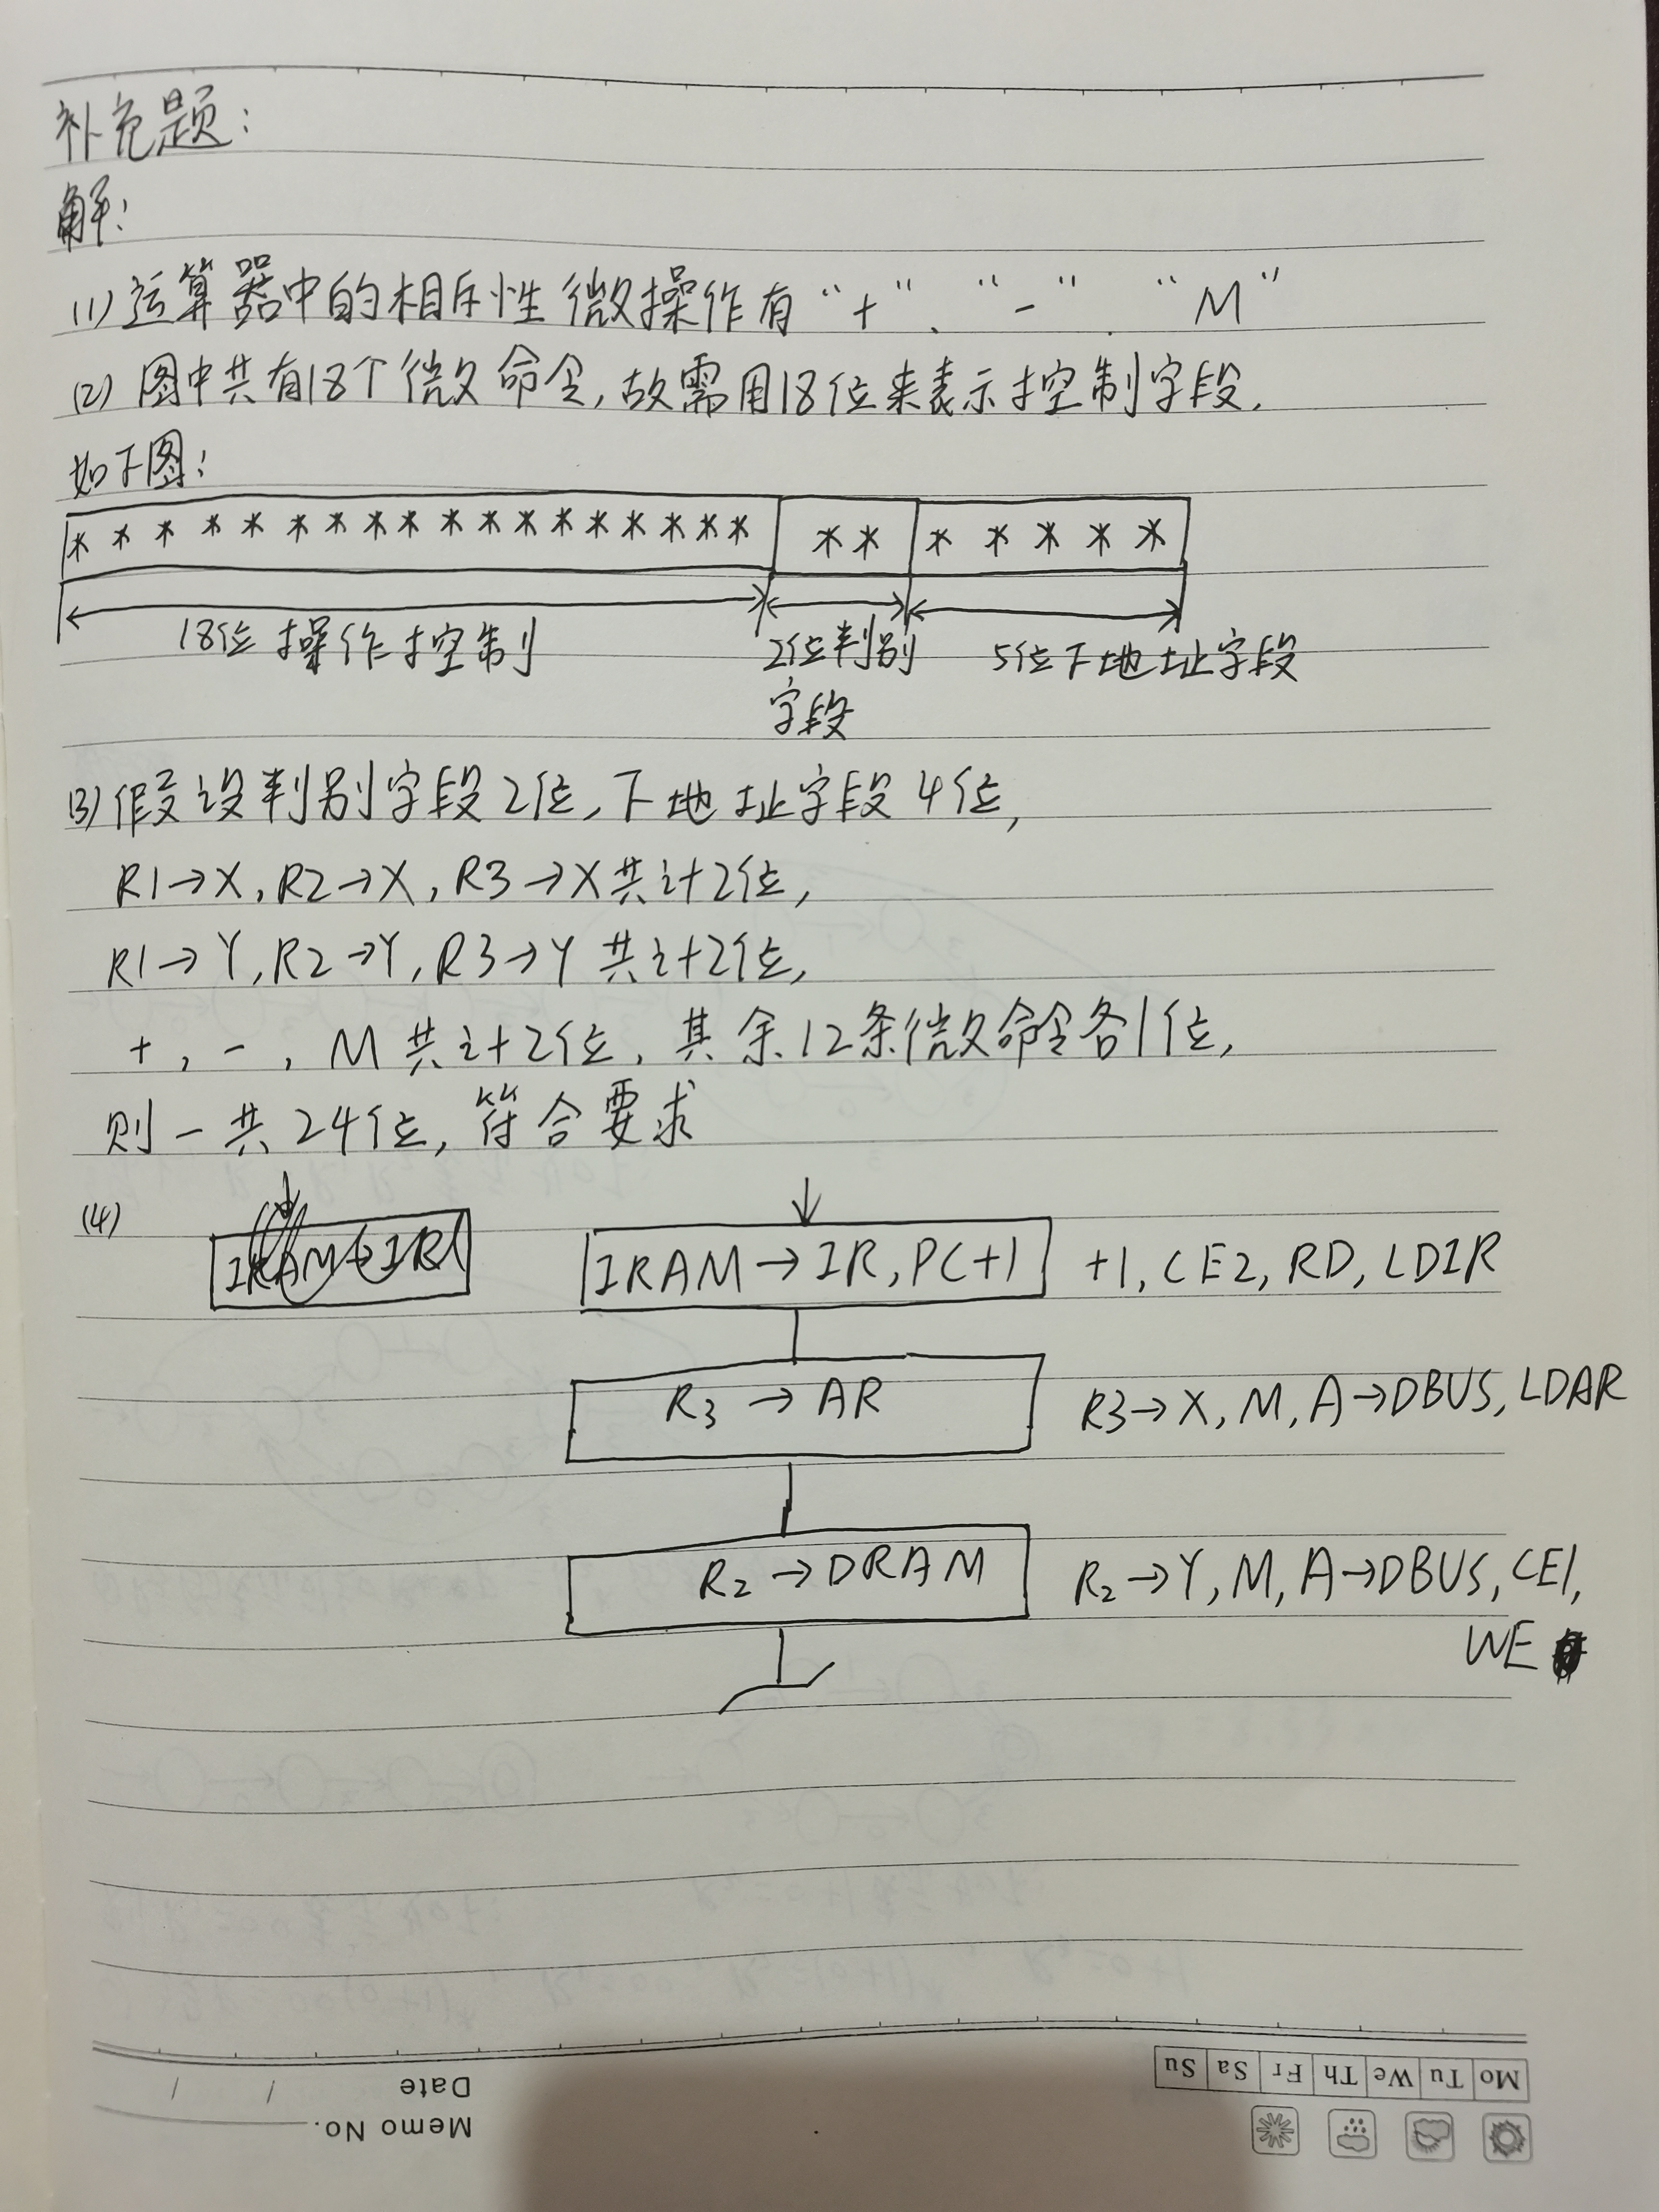 补充题:
解:
(1) 运算器中的相斥性微操作有“+”、“-”、“M”
(2) 图中共有18个微命令,故需用18位来表示控制字段.
如下图:
* * * * * * * * * * * * * * * * * * * * * * * * *
18位操作控制 2位判别字段 5位下地址字段
(3) 假设判别字段2位,下地址字段4位,
R1→X, R2→X, R3→X共计2位,
R1→Y, R2→Y, R3→Y共计2位,
+, -, M共计2位,其余12条微命令各1位,
则一共24位,符合要求
(4) IRAM→IR, PC+1 +1, CE2, RD, LDIR
R3→AR R3→X, M, A→DBUS, LDAR
R2→DRAM R2→Y, M, A→DBUS, CE1,
WE
Mo Tu We Th Fr Sa Su
Memo No.
Date / /